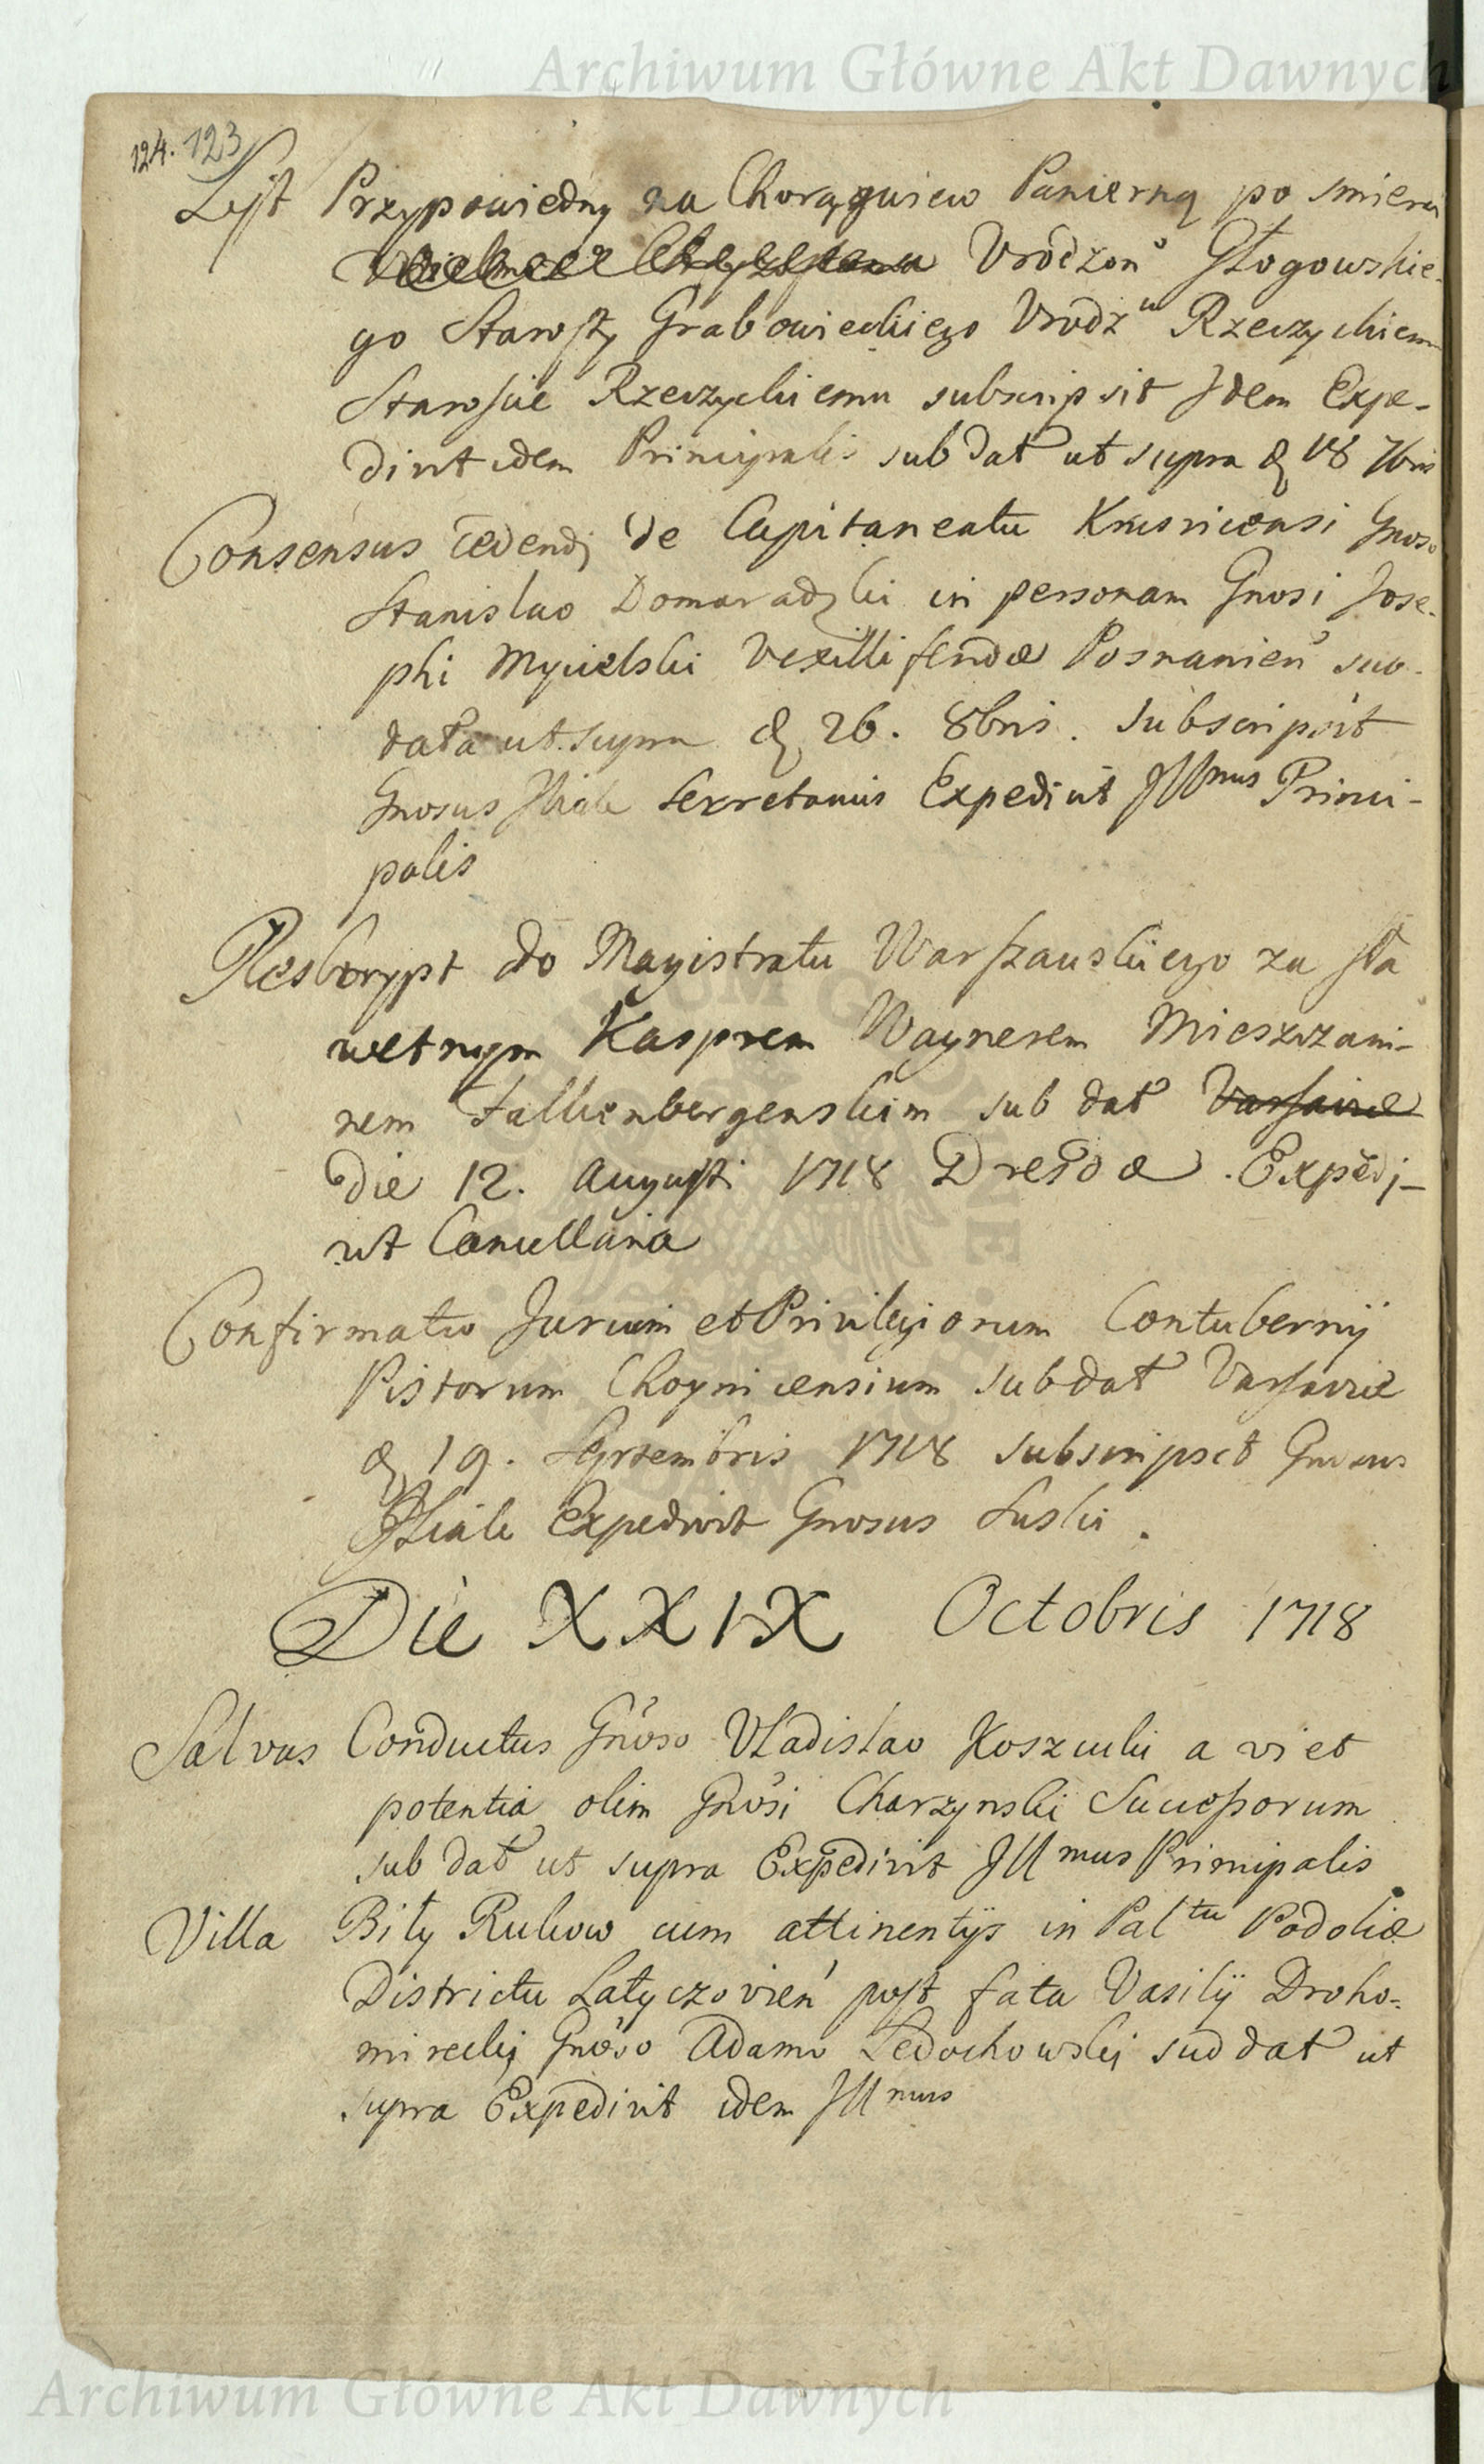 Archiwum Główne Akt Dawnych
124. 123
List Przypowiedny na Chorągwiew Panierną po smierci
Vrodzon Głogowskie-
go Starosty Grabowieckiego Vrodz Rzeczyckiem
Staroscie Rzeczyckiemu subscripsit Idem Expe-
divit idem Principalis sub dat ut supra d 18 7bris
Consensus cedendj de Capitaneatu Gnoso
Stanislao Domaradzki in personam Gnosi Jose-
phi Mycielski Vexilliferidæ Posnanien sub
data ut supra d 26. 8bris. Subscripsit
Gnosus Secretarius Expedivit Illmus Princi-
palis
Reskrypt do Magistratu Warszawskiego za sła
wetnym Kasprem Waynerem Mieszczani-
nem Falkenbergenskim sub dat Varsaviæ
Die 12. Augusti 1718 Dresdæ. Expedj-
vit Cancellaria
Confirmatio Jurium et Privilegiorum Contubernij
Pistorum Choynicensium sub dat Varsaviæ
d 19. Septembris 1718 subscripsit Gnosus
Expedivit Gnosus Suski.
Die XXIX Octobris 1718
Salvus Conductus Gnoso Vladislao Koszucki a vi et
potentia olim Gnosi Charzynski Successorum
sub dat ut supra Expedivit Illmus Principalis
Villa Biły Rukow cum attinentijs in Pal tu Podoliæ
Districtu Latyczovien post fata Vasilij Droho-
mireckj Gnoso Adamo Ledochowskj sub dat ut
supra Expedivit idem Illmus
Archiwum Główne Akt Dawnych